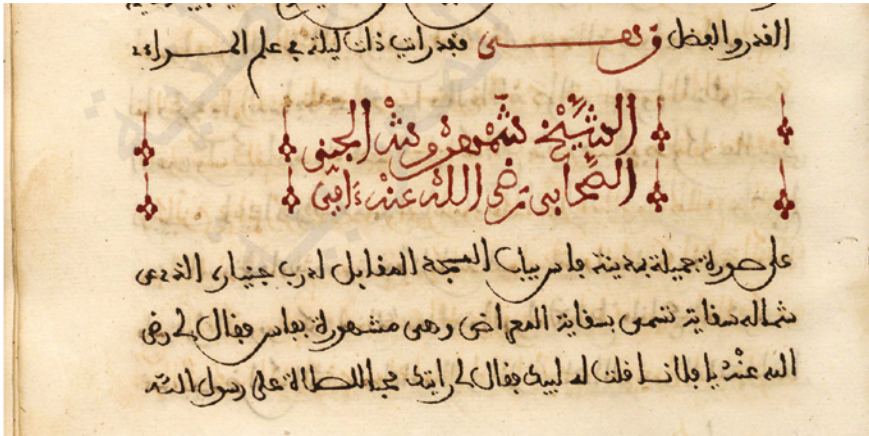 القدر والفضل وهى فقد رايت ذات ليلة في علم المراءى
الشيخ شمهروش الجني
الصحابى رضي الله عنه ءامين
على صورة جميلة بمدينة فاس بباب المسجد المقابل لدرب جنيارة الذى عن
شماله سقاية تسمى بسقاية المعراضى وهى مشهورة بفاس فقال لى رضى
الله عنه يا فلان فقلت له لبيك فقال لى رايتك محبا للصلاة على رسول الله